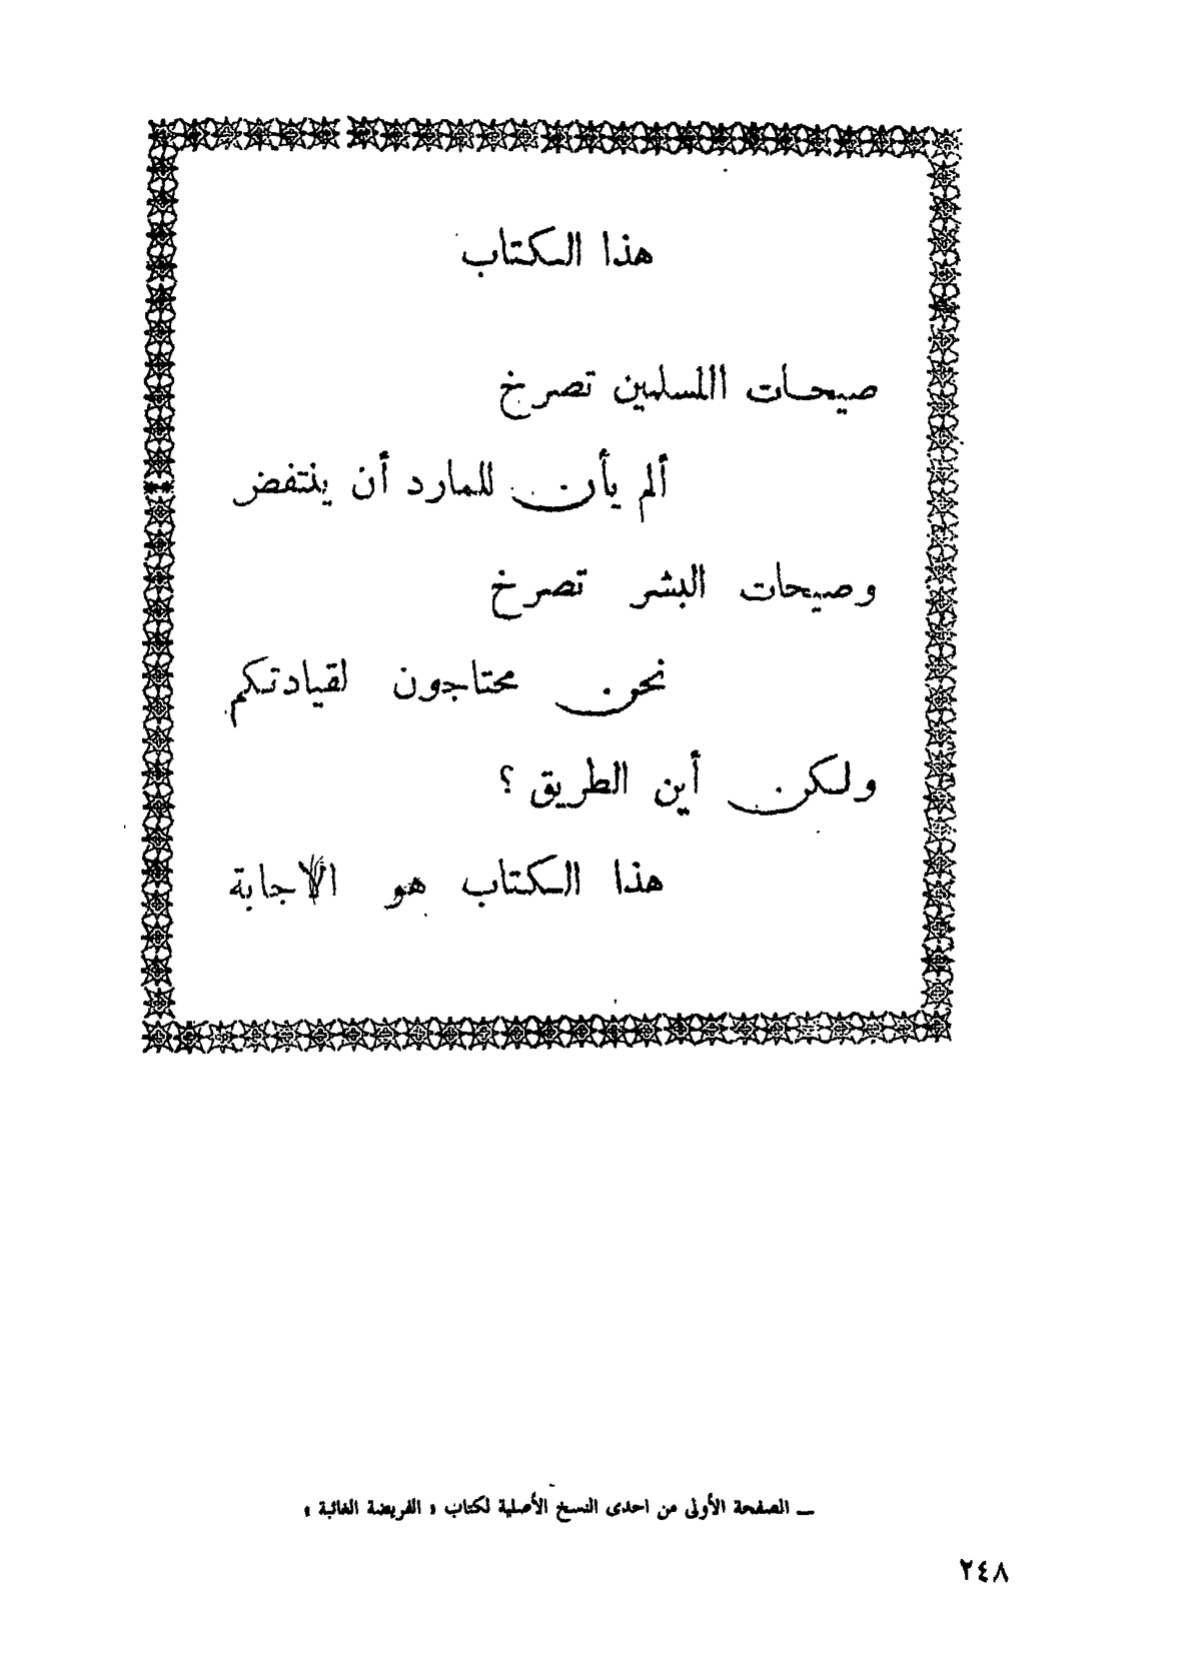 هذا الكتاب
صيحات المسلمين تصرخ
ألم يأن للمارد أن ينتفض
وصيحات البشر تصرخ
نحن محتاجون لقيادتكم
ولكن أين الطريق ؟
هذا الكتاب هو الاجابة
ــ الصفحة الأولى من احدى النسخ الأصلية لكتاب « الفريضة الغائبة »
٢٤٨